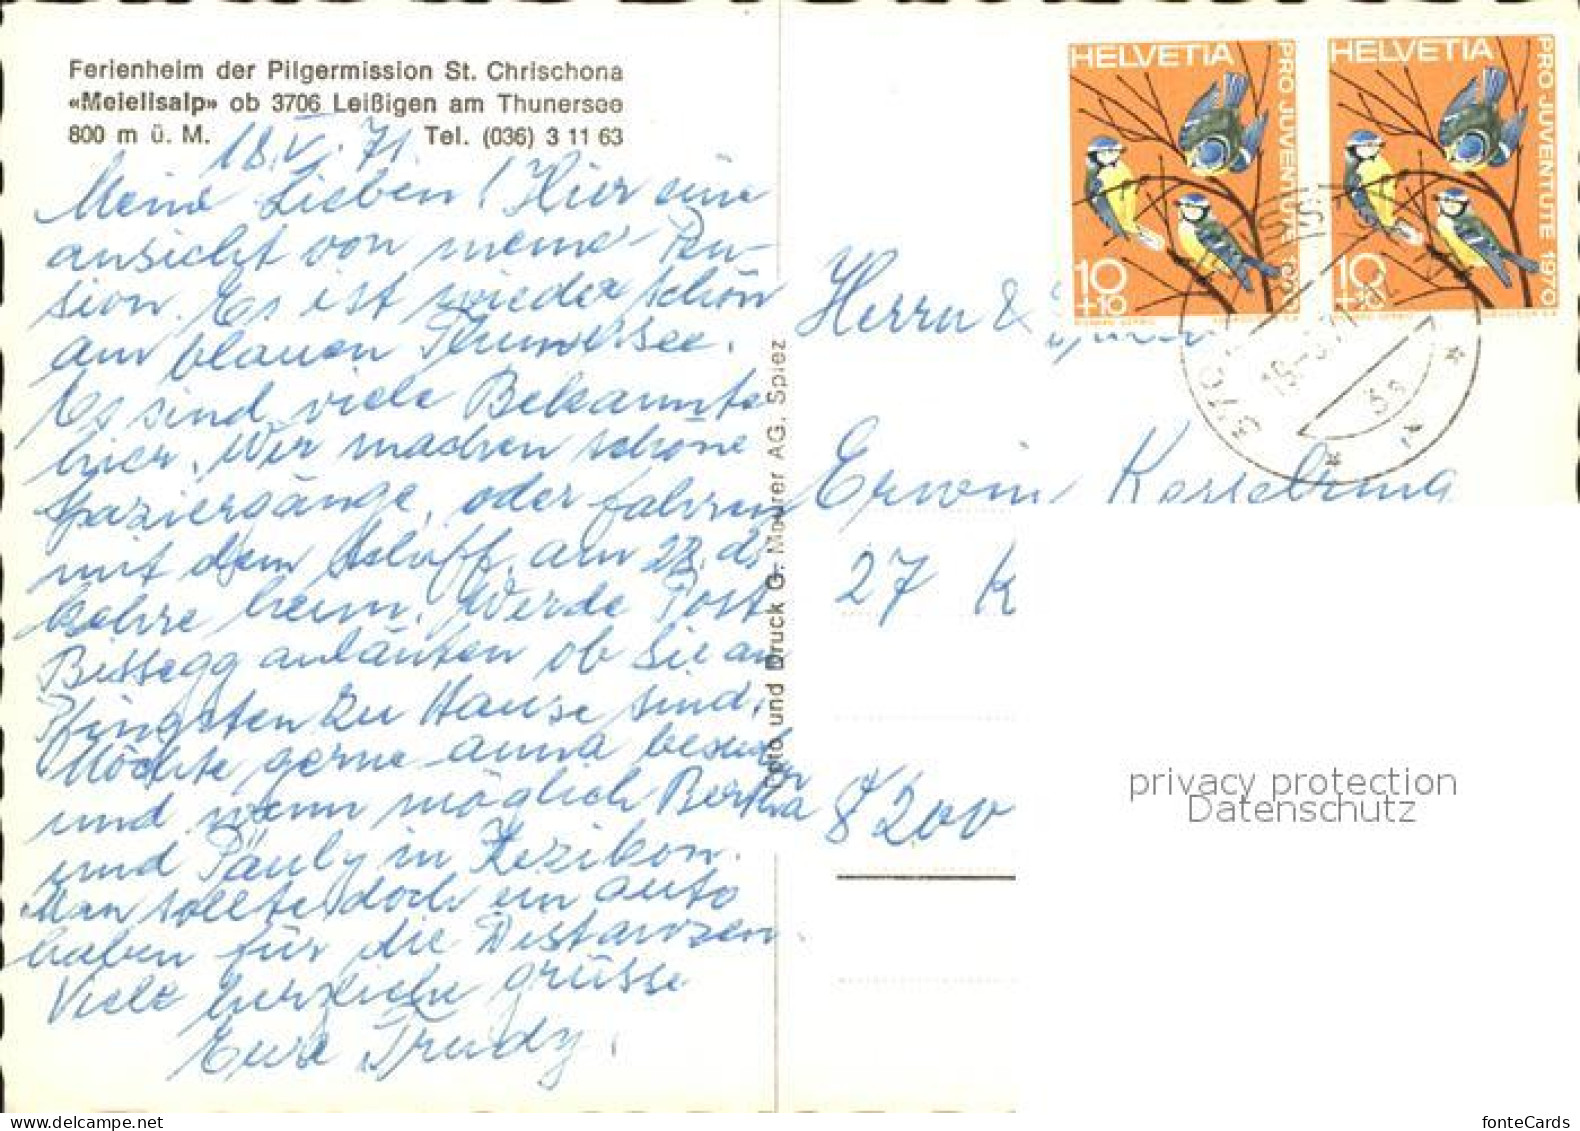 Ferienheim der Pilgermission St. Chrischona
«Meielisalp» ob 3706 Leißigen am Thunersee
800 m ü. M. Tel. (036) 3 11 63
18. V. 71.
Meine Lieben! Hier eine
ansicht von meiner Pen-
sion. Es ist wieder schön
am blauen Thunersee.
Es sind viele Bekannte
hier. Wir machen schöne
Spaziergänge, oder fahren
mit dem Schiff, am 22. ds
kehre heim. Werde Post
Bissegg anläuten ob Sie an
Pfingsten zu Hause sind.
Möchte gerne anna besuchen
und wenn möglich Bertha
und Pauly in
Man sollte doch ein auto
haben für die Distanzen.
Viele herzliche grüsse
Eure Trudy.
Foto und Druck G. Maurer AG., Spiez
HELVETIA
PRO JUVENTUTE 1970
10
+10
HELVETIA
PRO JUVENTUTE 1970
10
+10
Herrn &
Erwin
27 K
8200
privacy protection
Datenschutz
fonteCards